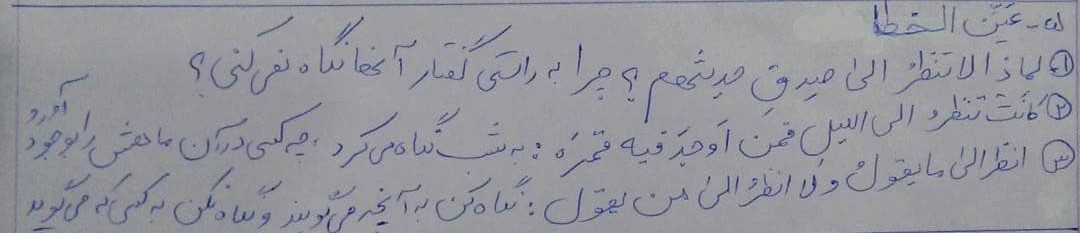 ۵- عَیِّن الخطا
① لماذا لاتنظرُ الی صِدقِ حدیثهم؟ چرا به راستی گفتار آنها نگاه نمی کنی؟
② کانَتْ تَنظرُ الی اللیل فمَن اَوجَدَ فیه قَمَرَه: به شب نگاه می کرد، چه کسی در آن ماهش را بوجود آورد
③ انظر الیٰ ما یقولُ و لا انظرُ الیٰ من یقول: نگاه کن به آنچه می گویند و نگاه نکن به کسی که می گوید